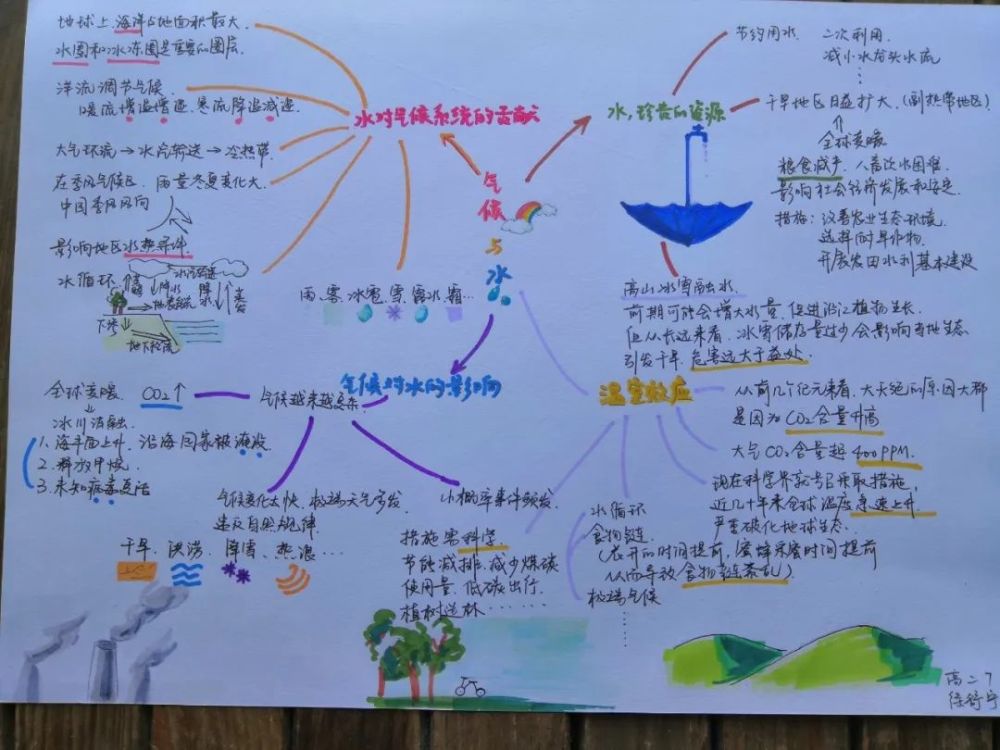 气候与水
水对气候系统的贡献
地球上海洋占地面积最大.
水圈和冰冻圈是重要的圈层.
洋流调节气候.
暖流增温增湿.寒流降温减湿.
大气环流→水汽输送→冷热带
在季风气候区.雨量冬夏变化大.
中国季风风向
影响地区水热条件
水循环
水汽输送
降水
降水
蒸发
地表径流
下渗
地下径流
雨、雾、冰雹、雪、露水、霜…
水,珍贵的资源
节约用水
二次利用.
减小水龙头水流
……
干旱地区日益扩大.(副热带地区)
全球变暖
粮食减产、人畜饮水困难
影响社会经济发展和安定.
措施:改善农业生态环境.
选择耐旱作物.
开展农田水利基本建设
高山冰雪融水.
前期可能会增大水量.促进沿江植物生长.
但从长远来看.冰雪储存量过少会影响当地生态
引发干旱.危害远大于益处.
气候对水的影响
气候越来越复杂
CO₂↑
全球变暖.
冰川消融.
1.海平面上升.沿海国家被淹没.
2.释放甲烷.
3.未知病毒复活
气候变化太快.极端天气多发
违反自然规律.
干旱、洪涝、降雪、热浪…
小概率事件频发
温室效应
从前几个纪元来看.大灭绝的原因大都
是因为CO₂含量升高
大气CO₂含量超400PPM.
现在科学界就号召采取措施,
近几十年来全球温度急速上升
严重破化地球生态.
水循环
食物链.
(花开的时间提前,蜜蜂采蜜时间提前
从而导致食物链紊乱)
极端气候
……
措施需科学
节能减排.减少煤碳
使用量.低碳出行.
植树造林……
高二7